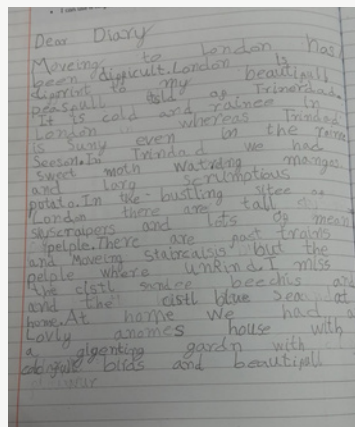 Dear Diary
Moveing to London has
been dipficult. London is
diprint to my beautipall
peaspall old ag Trinerdad.
It is cold and rainee in
London whereas Trinded
is Suny even in the rainee
Seeson. In Trindad we had
sweet moth watring manges
and larg scrumptious
potato. In the bustling sitee of
London there are tall
skyscraipers and lots of mean
pelple. There are past trains
and Moveing staircaisis but the
pelple where unkind. I miss
the clstl sandee beechis and
and the cistl blue sea at
home. At home we had a
Lovly anomes house with
a gigenting gardn with
colougull birds and beautipall